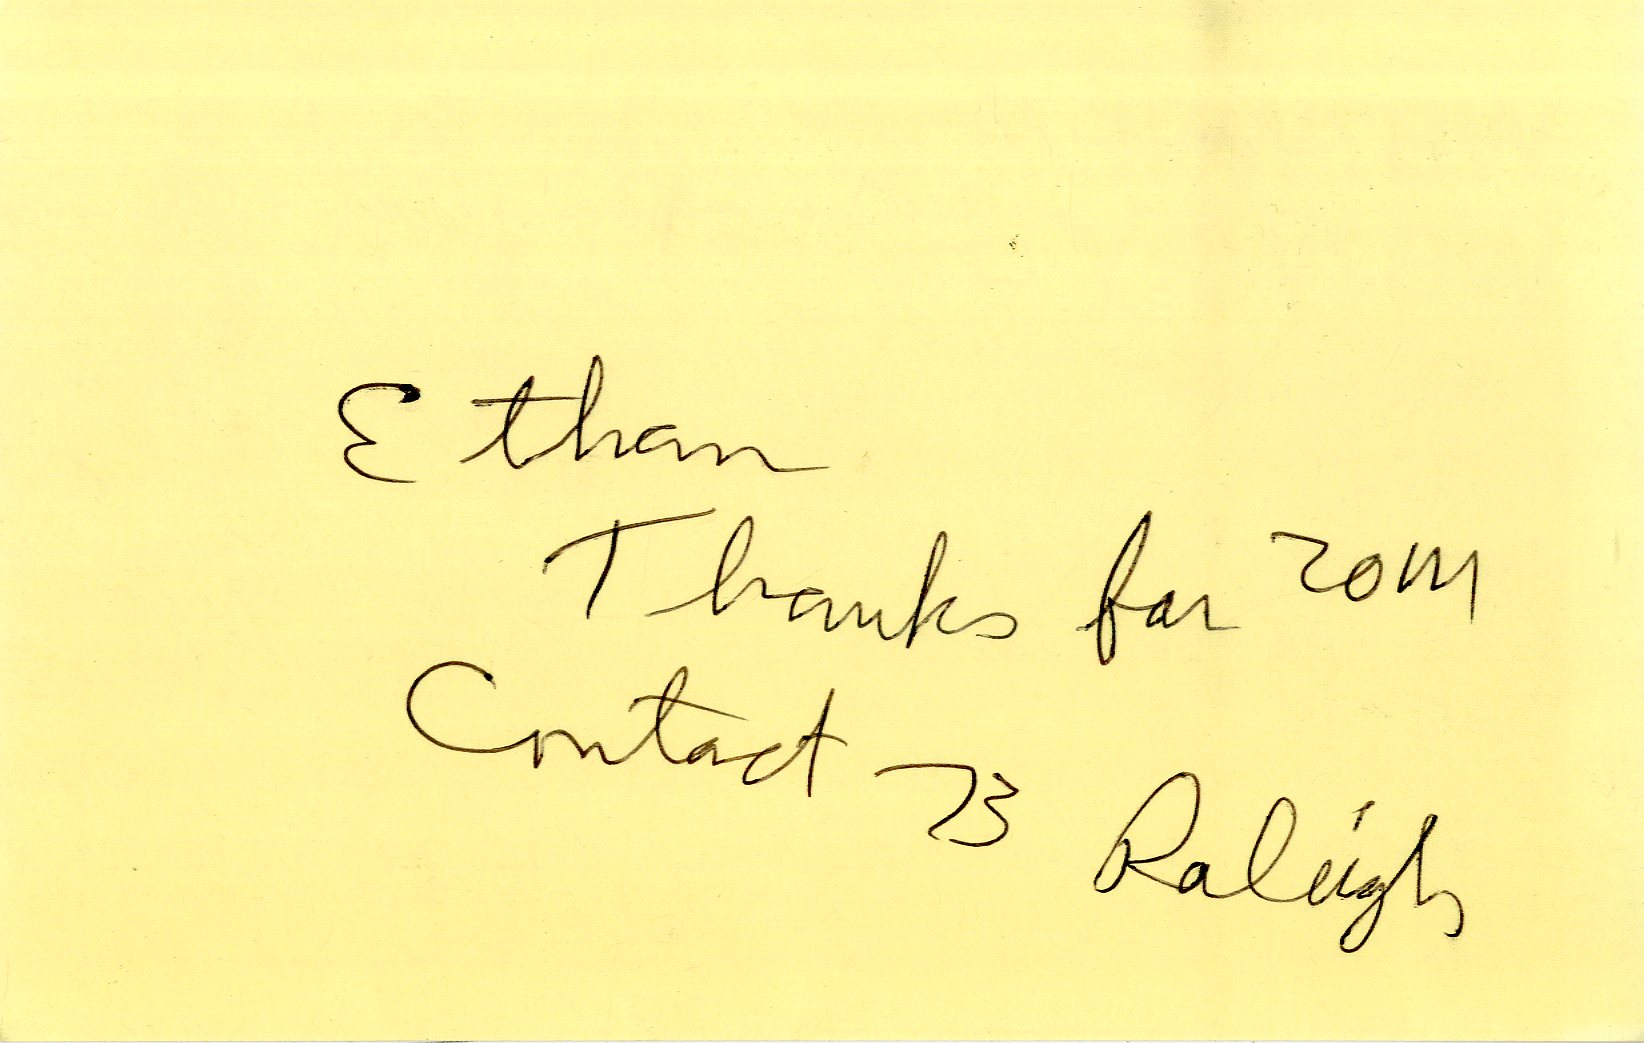 Ethan
Thanks for 20M
Contact 73 Raleigh